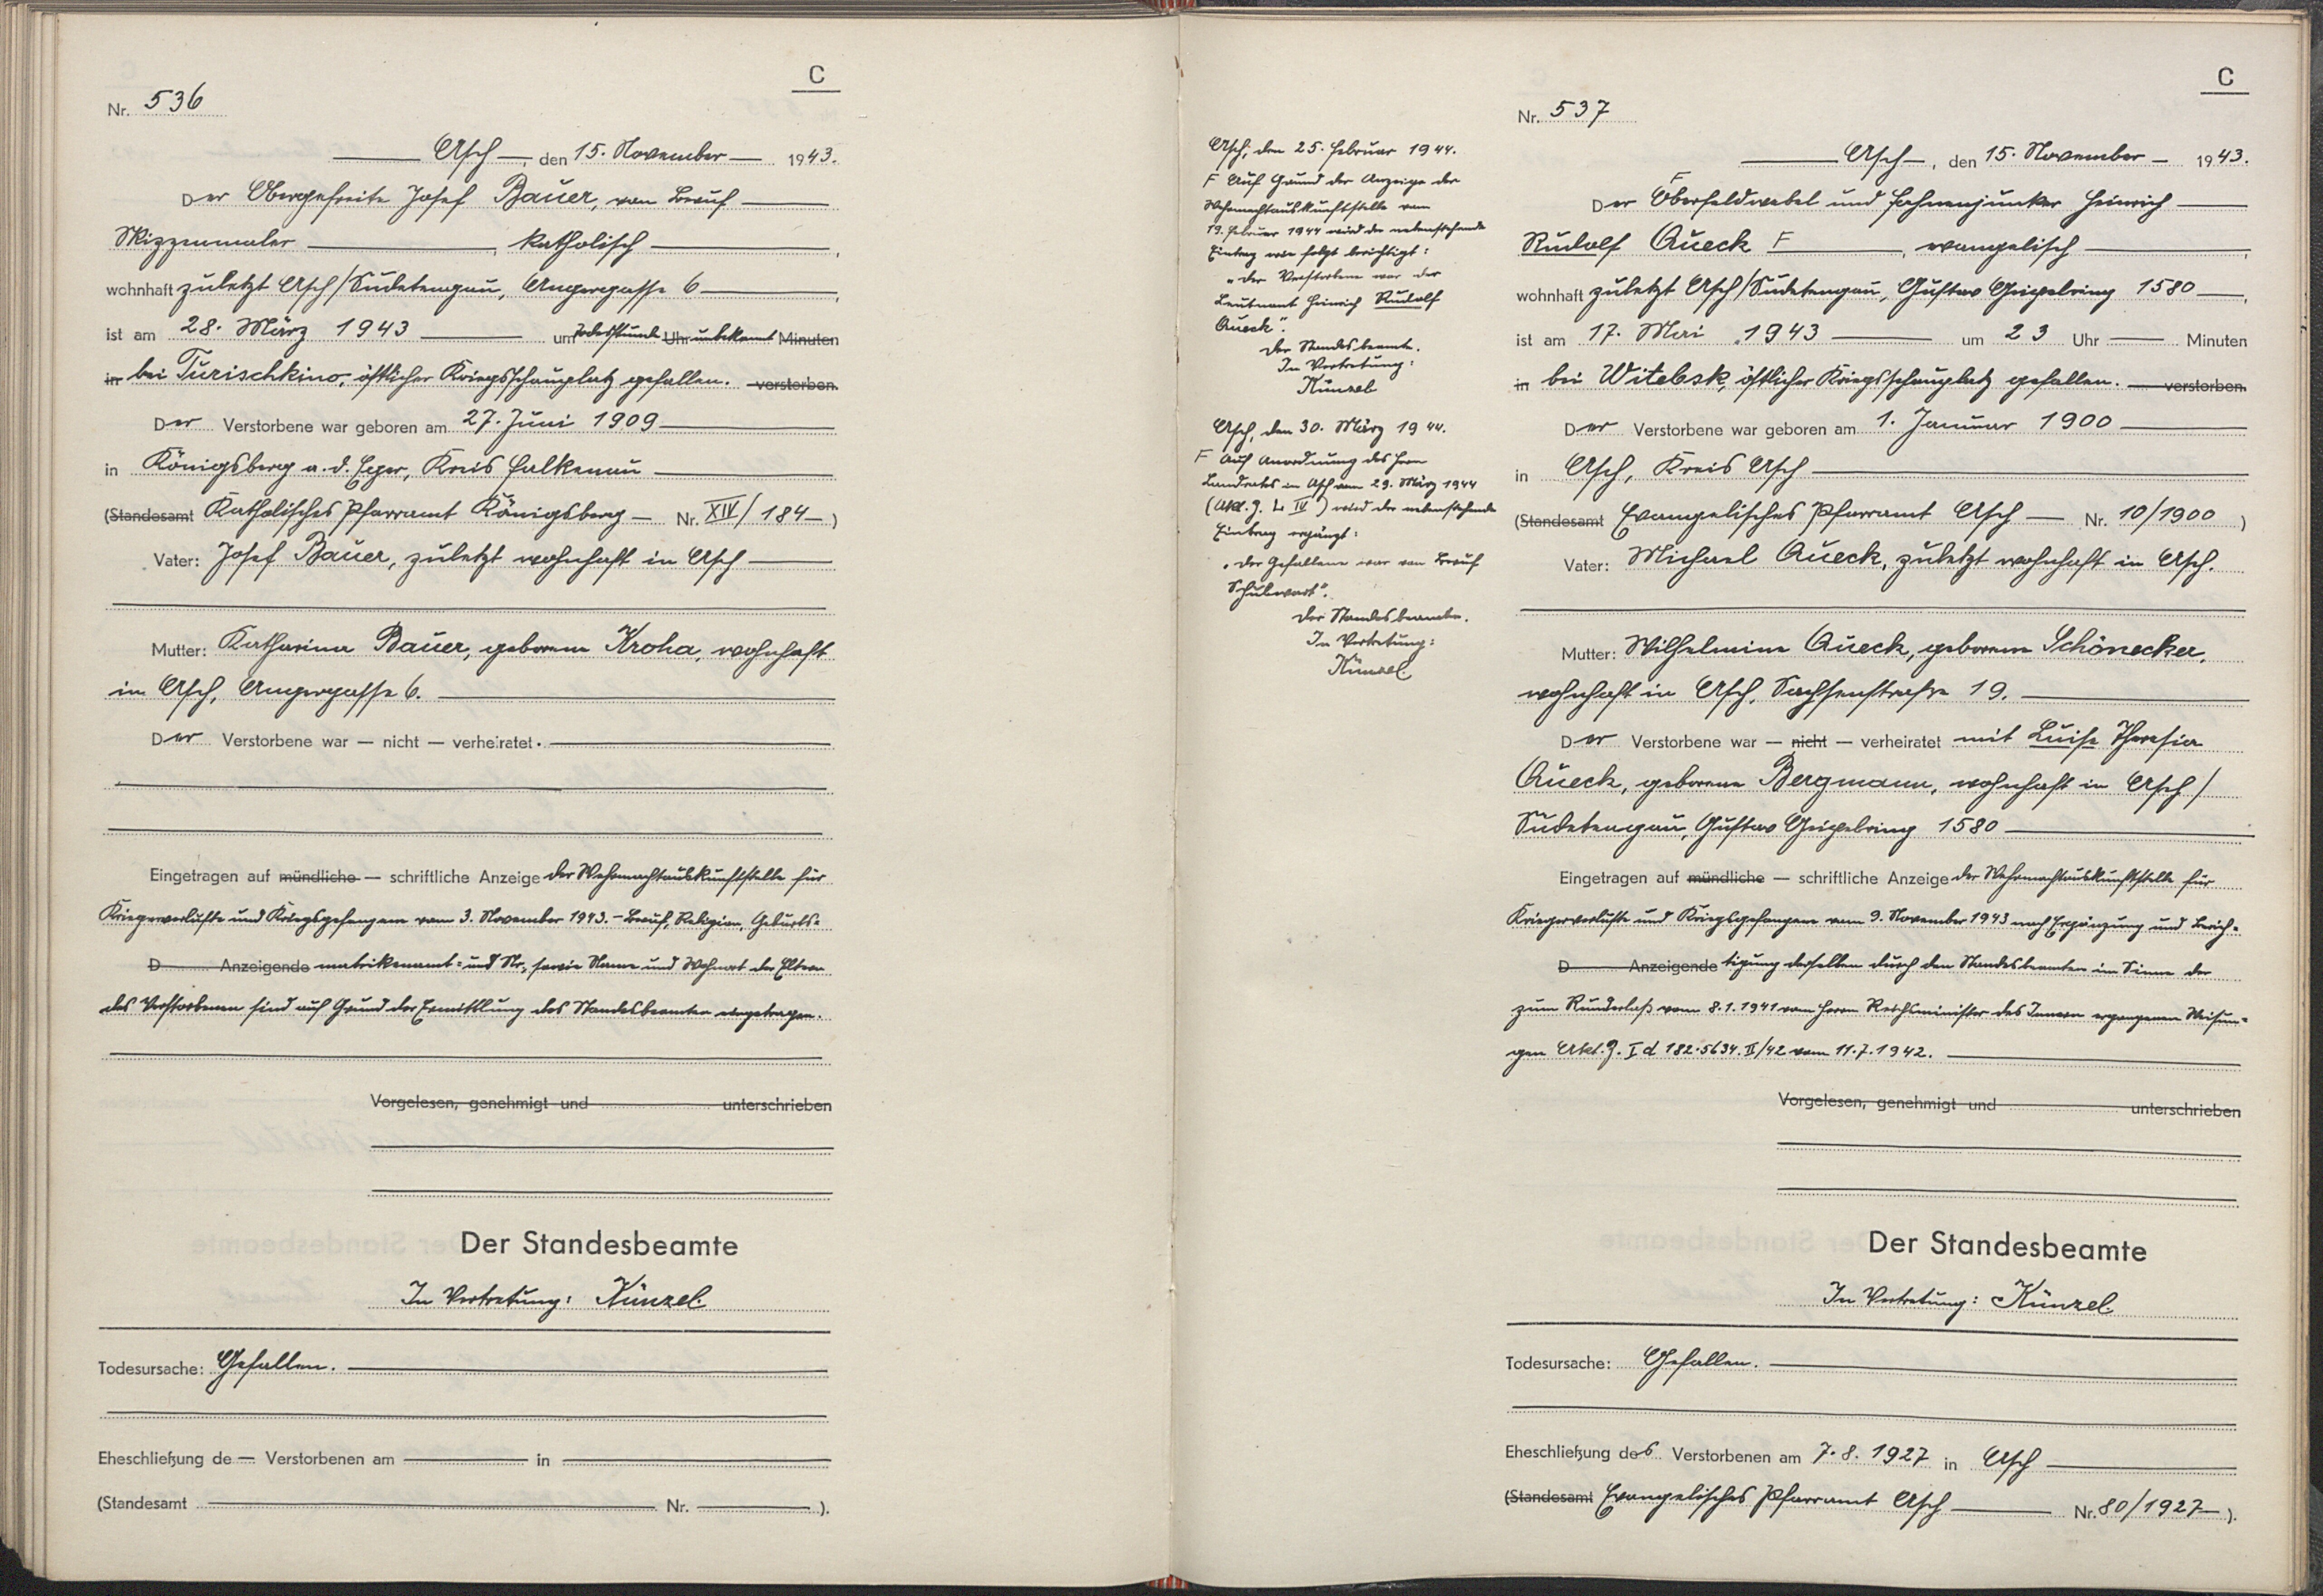 C
Nr. 536
Asch, den 15. November 1943.
Der Obergefreite Josef Bauer, von Beruf
Skizzenmaler, katholisch,
wohnhaft zuletzt Asch/Sudetengau, Angergasse 6,
ist am 28. März 1943 um Todesstunde Uhr unbekannt Minuten
in bei Turischkino, östlicher Kriegsschauplatz gefallen. verstorben.
Der Verstorbene war geboren am 27. Juni 1909
in Königsberg a. d. Eger, Kreis Falkenau
(Standesamt Katholisches Pfarramt Königsberg Nr. XIV/184)
Vater: Josef Bauer, zuletzt wohnhaft in Asch
Mutter: Katharina Bauer, geborene Kroha, wohnhaft
in Asch, Angergasse 6.
Der Verstorbene war — nicht — verheiratet.
Eingetragen auf mündliche — schriftliche Anzeige der Wehrmachtauskunftstelle für
Kriegerverluste und Kriegsgefangene vom 3. November 1943. - Beruf, Religion, Geburts-
D Anzeigende matrikenamt- und Nr., sowie Name und Wohnort der Eltern
des Verstorbenen sind auf Grund der Ermittlung des Standesbeamten eingetragen.
Vorgelesen, genehmigt und unterschrieben
Der Standesbeamte
In Vertretung: Künzel.
Todesursache: Gefallen.
Eheschließung de Verstorbenen am in
(Standesamt Nr. ).
Asch, den 25. Februar 1944.
F Auf Grund der Anzeige der
Wehrmachtauskunftstelle vom
19. Februar 1944 wird der nebenstehende
Eintrag wie folgt berichtigt:
"Der Verstorbene war der
Leutnant Heinrich Rudolf
Aueck".
Der Standesbeamte.
In Vertretung:
Künzel
Asch, den 30. März 1944.
F Auf Anordnung des Herrn
Landrates in Asch vom 29. März 1944
(Akt. Z. L IV) wird der nebenstehende
Eintrag ergänzt:
"Der Gefallene war von Beruf
Schulwart".
Der Standesbeamte.
In Vertretung:
Künzel.
C
Nr. 537
Asch, den 15. November 1943.
F
Der Oberfeldwebel und Fahnenjunker Heinrich
Rudolf Aueck F, evangelisch,
wohnhaft zuletzt Asch/Sudetengau, Gustav Geipelring 1580,
ist am 17. Mai 1943 um 23 Uhr Minuten
in bei Witebsk, östlicher Kriegsschauplatz gefallen. verstorben.
Der Verstorbene war geboren am 1. Januar 1900
in Asch, Kreis Asch
(Standesamt Evangelisches Pfarramt Asch Nr. 10/1900)
Vater: Michael Aueck, zuletzt wohnhaft in Asch.
Mutter: Wilhelmine Aueck, geborene Schönecker,
wohnhaft in Asch, Sachsenstraße 19.
Der Verstorbene war — nicht — verheiratet mit Luise Theresia
Aueck, geborene Bergmann, wohnhaft in Asch/
Sudetengau, Gustav Geipelring 1580
Eingetragen auf mündliche — schriftliche Anzeige der Wehrmachtauskunftstelle für
Kriegerverluste und Kriegsgefangene vom 9. November 1943 nach Ergänzung und Berich-
D Anzeigende tigung derselben durch den Standesbeamten im Sinne der
zum Runderlaß vom 8.1.1941 vom Herrn Reichsminister des Innern ergangenen Weisun-
gen Akt. Z. I d 182.5634.II/42 vom 11.7.1942.
Vorgelesen, genehmigt und unterschrieben
Der Standesbeamte
In Vertretung: Künzel.
Todesursache: Gefallen.
Eheschließung des Verstorbenen am 7.8.1927 in Asch
(Standesamt Evangelisches Pfarramt Asch Nr. 80/1927).